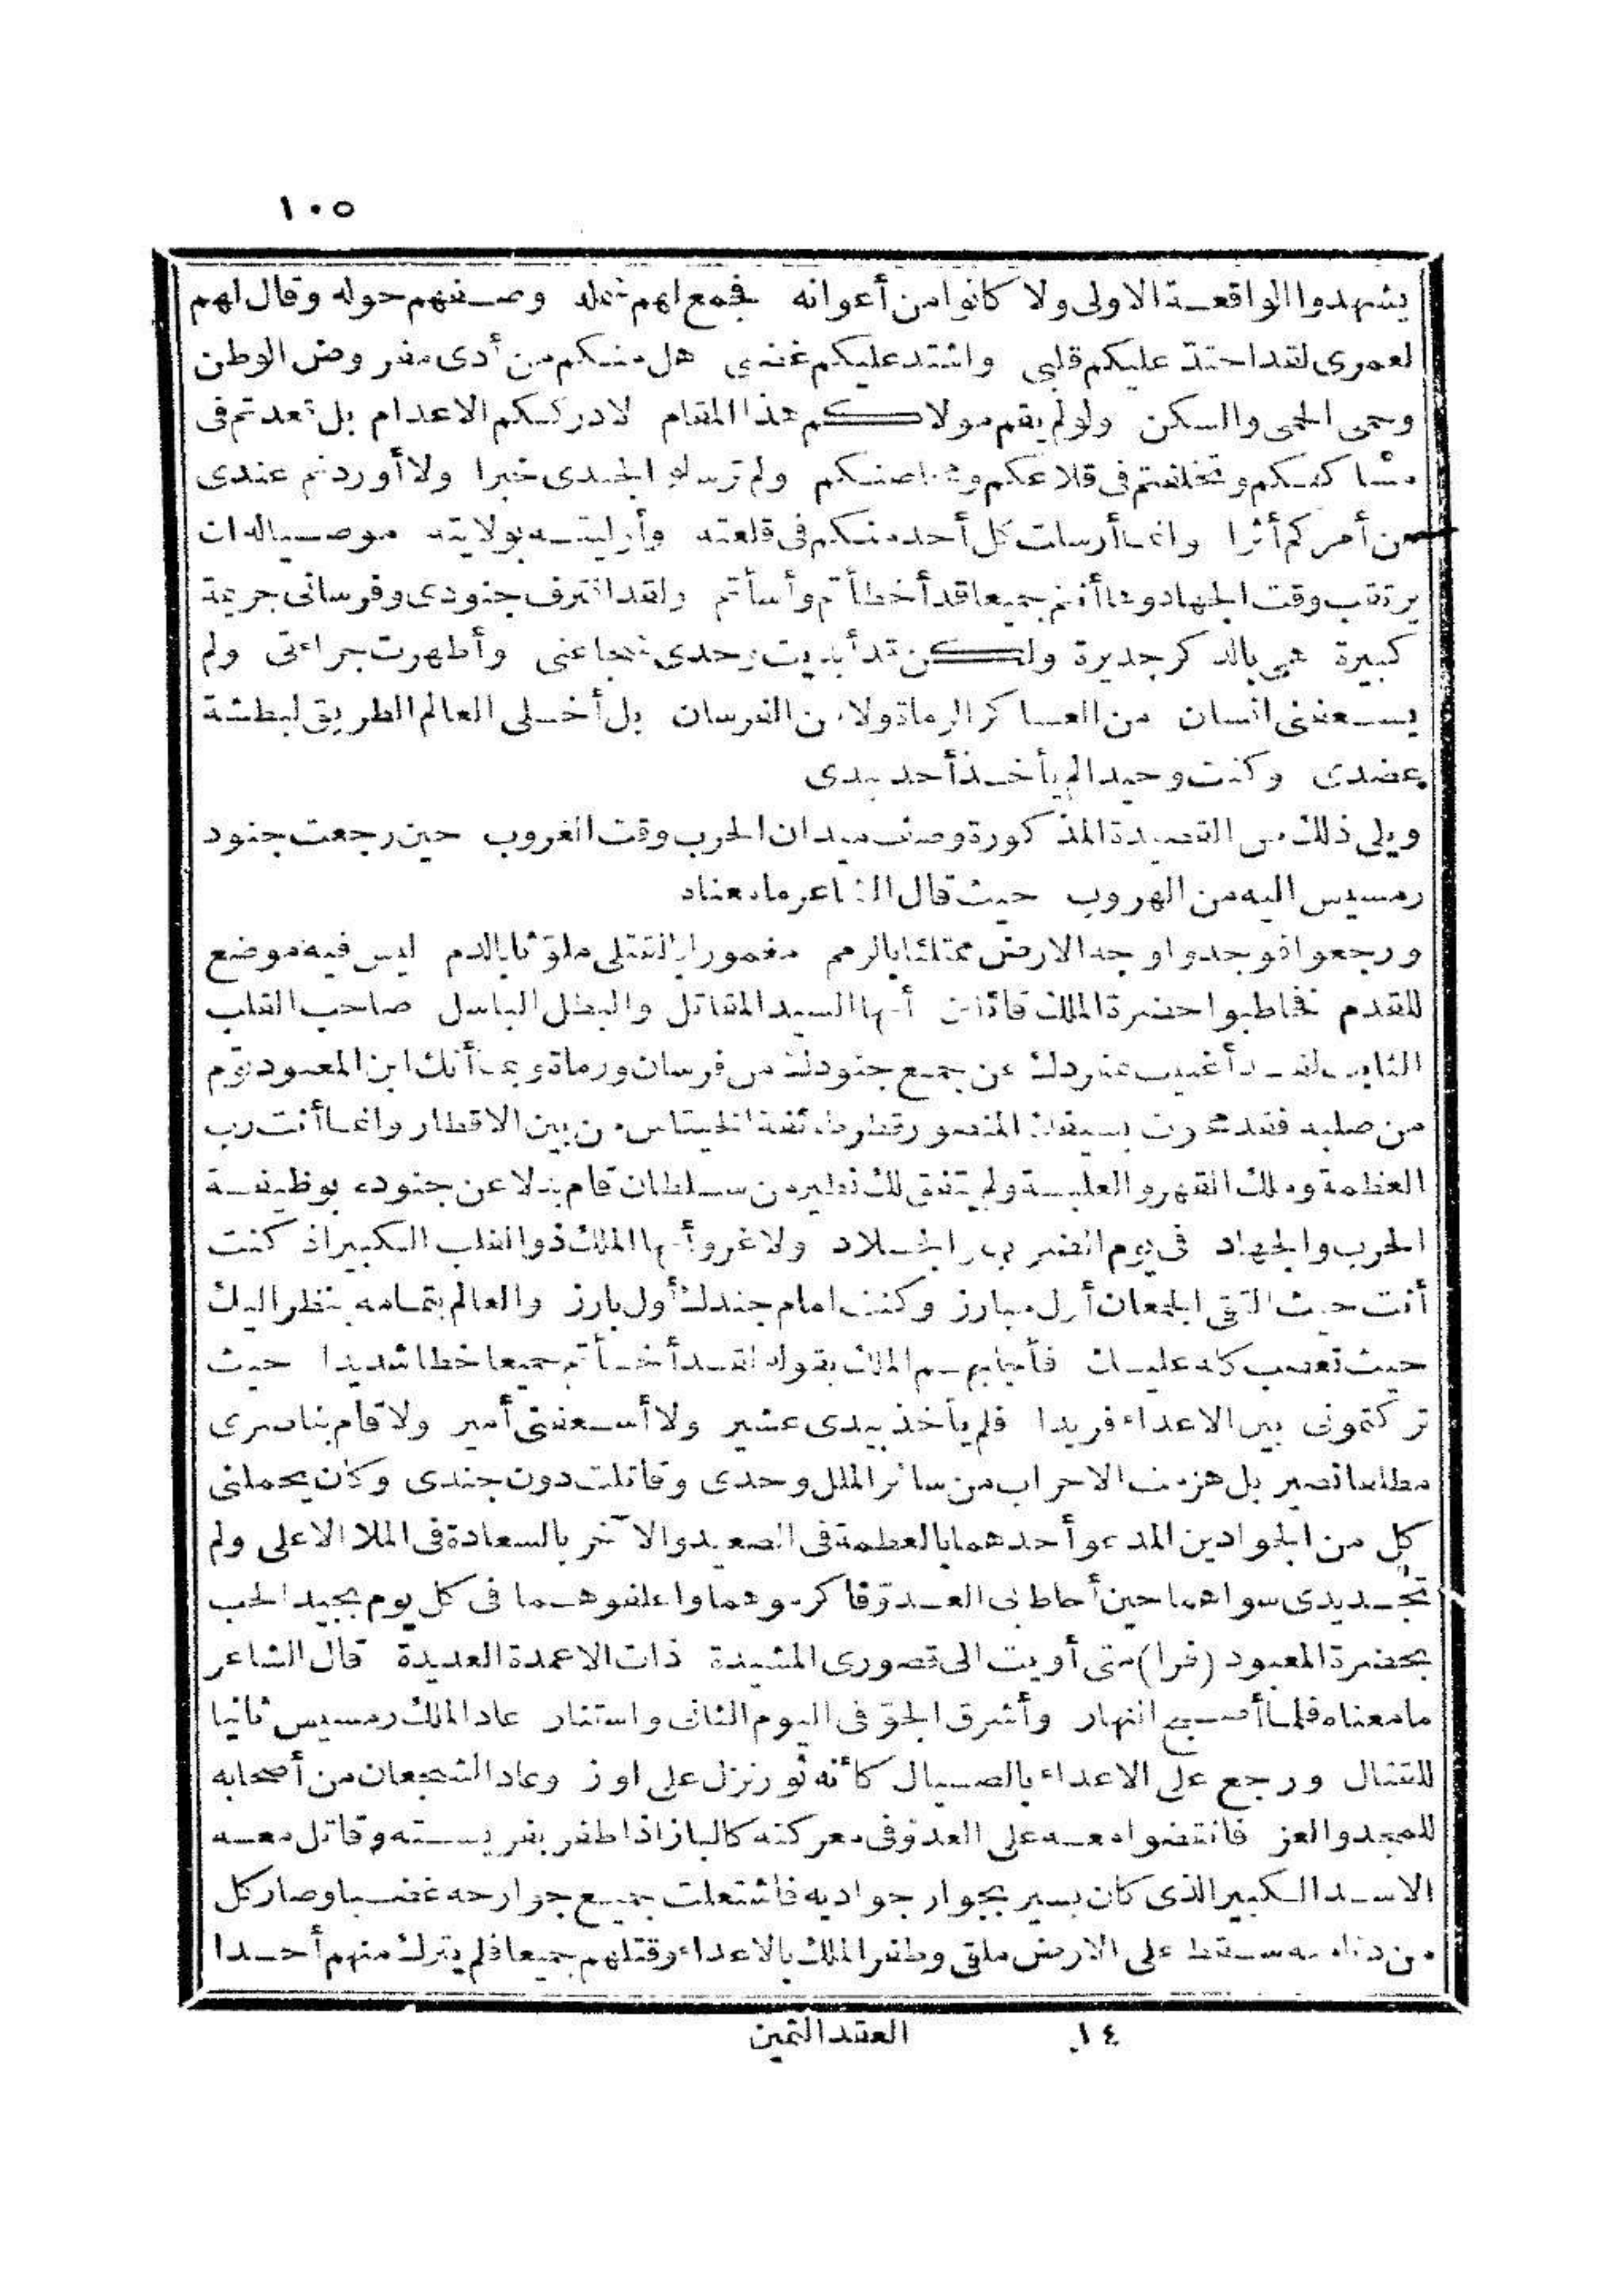 ١٠٥
يشهدوا الواقعة الاولى ولا كانوا من أعوانه فجمع لهم شمله وصفهم حوله وقال لهم
لعمرى لقد احتدّ عليكم قلبى واشتد عليكم غضبى هل منكم من أدى مفروض الوطن
وحمى الحمى والسكن ولو لم يقم مولاكم هذا المقام لادرككم الاعدام بل قعدتم فى
مساكنكم وتخلفتم فى قلاعكم ولم ترسلوا لجندى خبرا ولا أوردتم عندى
من أمركم أثرا وانما أرسلت كل أحد منكم فى قلعته وأوليته بولايته موصيا له ان
يرتقب وقت الجهاد وها أنتم جميعا قد أخطأتم وأسأتم ولقد اقترف جنودى وفرسانى جريمة
كبيرة هى بالذكر جديرة ولكن قد أبديت وحدى شجاعتى وأظهرت جراءتى ولم
يسعفنى انسان من العساكر الرماة ولا من الفرسان بل أخلى العالم الطريق لبطشة
عضدى وكنت وحيدا لم يأخذ أحد بيدى
ويلى ذلك من القصيدة المذكورة وصف ميدان الحرب وقت الغروب حين رجعت جنود
رمسيس اليه من الهروب حيث قال الشاعر ما معناه
ورجعوا فوجدوا وجه الارض ممتلئا بالرمم مغمورا بالقتلى ملوّثا بالدم ليس فيه موضع
للقدم فخاطبوا حضرة الملك قائلين أيها السيد المقاتل والبطل الباسل صاحب القلب
الثابت لقد أغنيت بمفردك عن جميع جنودك من فرسان ورماة وبما أنك ابن المعبود توم
من صلبه فقد محوت بسيفك المنصور قطر طائفة الخيتاس من بين الاقطار وانما أنت رب
العظمة وملك القهر والغلبة ولم يتفق لك نظير من سلطان قام بدلا عن جنوده بوظيفة
الحرب والجهاد فى يوم الضرب والجلاد ولا غرو أيها الملك ذو القلب الكبير اذ كنت
أنت حيث التقى الجمعان أول مبارز وكنت امام جندك أول بارز والعالم بتمامه ينظر اليك
حيث تعصب كله عليك فأجابهم الملك بقوله لقد أخطأتم جميعا خطا شديدا حيث
تركتمونى بين الاعداء فريدا فلم يأخذ بيدى عشير ولا أسعفنى أمير ولا قام بناصرى
مطلقا نصير بل هزمت الاحزاب من سائر الملل وحدى وقاتلت دون جندى وكان يحملنى
كل من الجوادين المدعو أحدهما بالعظمة فى الصعيد والآخر بالسعادة فى الملا الاعلى ولم
تجد يدى سواهما حين أحاط بى العدوّ فاكرموهما واعلفوهما فى كل يوم بجيد الحب
بحضرة المعبود (فرا) متى أويت الى قصورى المشيدة ذات الاعمدة العديدة قال الشاعر
ما معناه فلما أصبح النهار وأشرق الجوّ فى اليوم الثانى واستنار عاد الملك رمسيس ثانيا
للقتال ورجع على الاعداء بالصيال كأنه ثور نزل على اوز وعاد الشجعان من أصحابه
للمجد والعز فانتضوا معه على العدوّ فى معركته كالباز اذا ظفر بفريسته وقاتل معه
الاسد الكبير الذى كان يسير بجوار جواديه فاشتعلت جميع جوارحه غضبا وصار كل
من دنا منه سقط على الارض ملقى وظفر الملك بالاعداء وقتلهم جميعا فلم يترك منهم أحدا
١٤ العقد الثمين